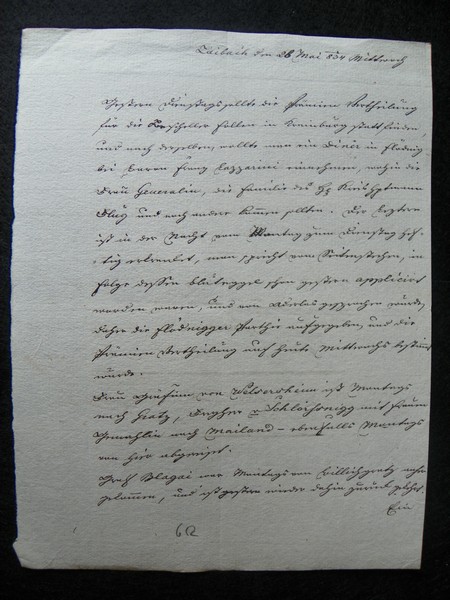 Laibach den 28 Mai 834 Mittwoch
Gestern Dienstag sollte die Prämien Vertheilung
für die Bescheller Fallen in Krainburg statt finden,
und nach derselben, wollte man ein Diner in Flödnig
bei Baron Franz Lazzarini einnehmen, wohin die
Frau Generalin, die Familie des H Kreishptmann
und noch andere kommen sollten. Der Letztere
ist in der Nacht vom Montag zum Dienstag hef-
tig erkrankt, man spricht vom Seitenstechen, in
Folge dessen Blutegel schon gestern applicirt
worden waren, und von Aderlas gesprochen wurde,
daher die Flödnigger Parthie aufgegeben, und die
Prämien Vertheilung auf heute Mittwochs bestimmt
wurde.
Frau Gräfinn von Welsersheim ist Montags
nach Gratz, mit seiner Frau
Gemahlin nach Mailand – ebenfalls Montags
von hier abgereist.
Graf Blagai war Montags von Billichgratz
gekommen, und ist gestern wieder dahin zurück gekehrt.
Ein
62